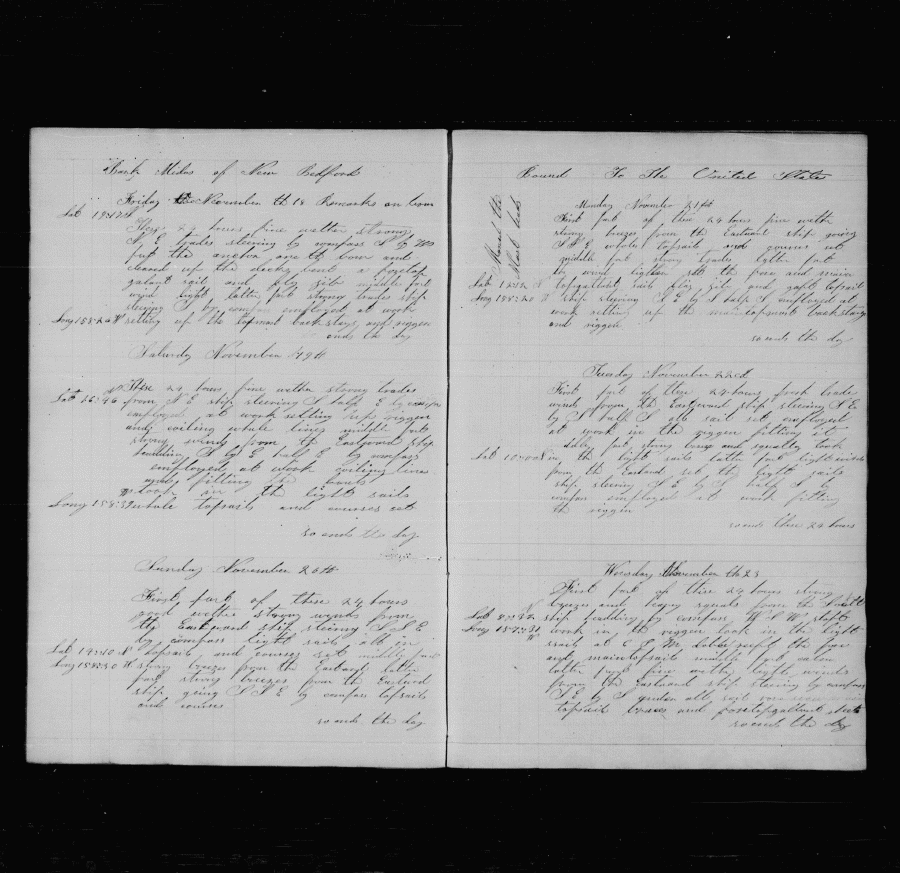 Bark Midas of New Bedford
Friday November th 18 Remarks on board
Lat 19=12 N
These 24 hours fine wether strong
N E trades steering by compass S by W
put the anchors on the bow and
cleaned up the decks bent a foretop
galant sail and flyg jib middle part
wind light latter part strong trades ship
steering S by compas employed at work
Long 158=26 W setting up the topmast backstays and riggen
ends the day
Saturday November 19th
These 24 hours fine wether strong trades
Lat 16=46 N from N E ship steering S half E by compas
employed at work setting up riggen
and coiling whale lines middle part
strong winds from the Eastward ship
steering S by E half E by compass
employed at work coiling lines
and fitting the boats
took in the light sails
Long 158=3 W whole topsails and courses set
so ends the day
Sunday November 20th
First part of these 24 hours
good wether strong winds from
the Eastward ship steering S S E
by compass light sails all in
Lat 14=10 N topsails and courses set middle part
Long 158=30 W strong breezes from the Eastward latter
part strong breezes from the Eastward
ship going S S E by compass topsails
and courses
so ends the day
Bound To The United States
Monday November 21st
First part of these 24 hours fine wether
strong breezes from the Eastward ship going
S S E whole topsails and courses set
middle part strong trades latter part
by wind lighten set the fore and main
Lat 12=12 N topgallant sails flyg jib and gaft topsail
Long 158=20 W ship steering S E by S half S employed at
work setting up the main topmast backstays
and riggen
so ends the day
Tuesday November 22cd
First part of these 24 hours fresh trade
winds from the Eastward ship steering S E
by S half S all sail set employed
at work in the riggen fitting etc
middle part strong breeze and squalls took
Lat 10=00 N in the light sails latter part light winds
from the Eastward set the light sails
ship steering S E by S half S by
compas employed at work fitting
the riggen
so ends these 24 hours
Wensday November th 23
First part of these 24 hours strong
breezes and heavy squals from the South
ship heading by compass W S W
work in the riggen took in the light
sails at 6 P M the fore
and maintopsails middle part
latter part fine wether light winds
from the Eastward ship steering by compass
S E by S all sail
topsail braces and foretopgallant sheets
so ends the day